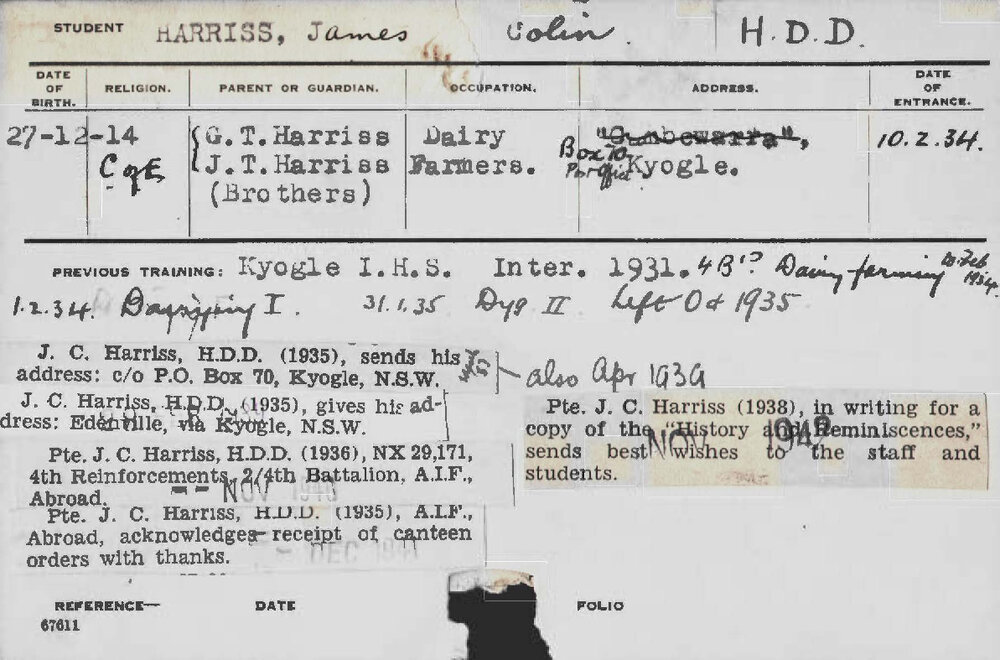 STUDENT HARRISS, James Colin. H.D.D.
DATE OF BIRTH. RELIGION. PARENT OR GUARDIAN. OCCUPATION. ADDRESS. DATE OF ENTRANCE.
27-12-14 {G.T.Harriss Dairy "Cambewarra", 10.2.34.
C of E {J.T.Harriss Farmers. Box 70 Post Office Kyogle.
(Brothers)
PREVIOUS TRAINING: Kyogle I.H.S. Inter. 1931. 4B'? Dairy farming to Feb 1934.
1.2.34. Dairying I. 31.1.35 Dyg II Left Oct 1935
J. C. Harriss, H.D.D. (1935), sends his
address: c/o P.O. Box 70, Kyogle, N.S.W.
also Apr 1939
J. C. Harriss, H.D.D. (1935), gives his ad-
dress: Edenville, via Kyogle, N.S.W.
Pte. J. C. Harriss, H.D.D. (1936), NX 29,171,
4th Reinforcements, 2/4th Battalion, A.I.F.,
Abroad.
-- NOV 1940
Pte. J. C. Harriss, H.D.D. (1935), A.I.F.,
Abroad, acknowledges receipt of canteen
orders with thanks.
- DEC 1941
Pte. J. C. Harriss (1938), in writing for a
copy of the "History and Reminiscences,"
sends best wishes to the staff and
students.
NOV 1942
REFERENCE— DATE FOLIO
67611